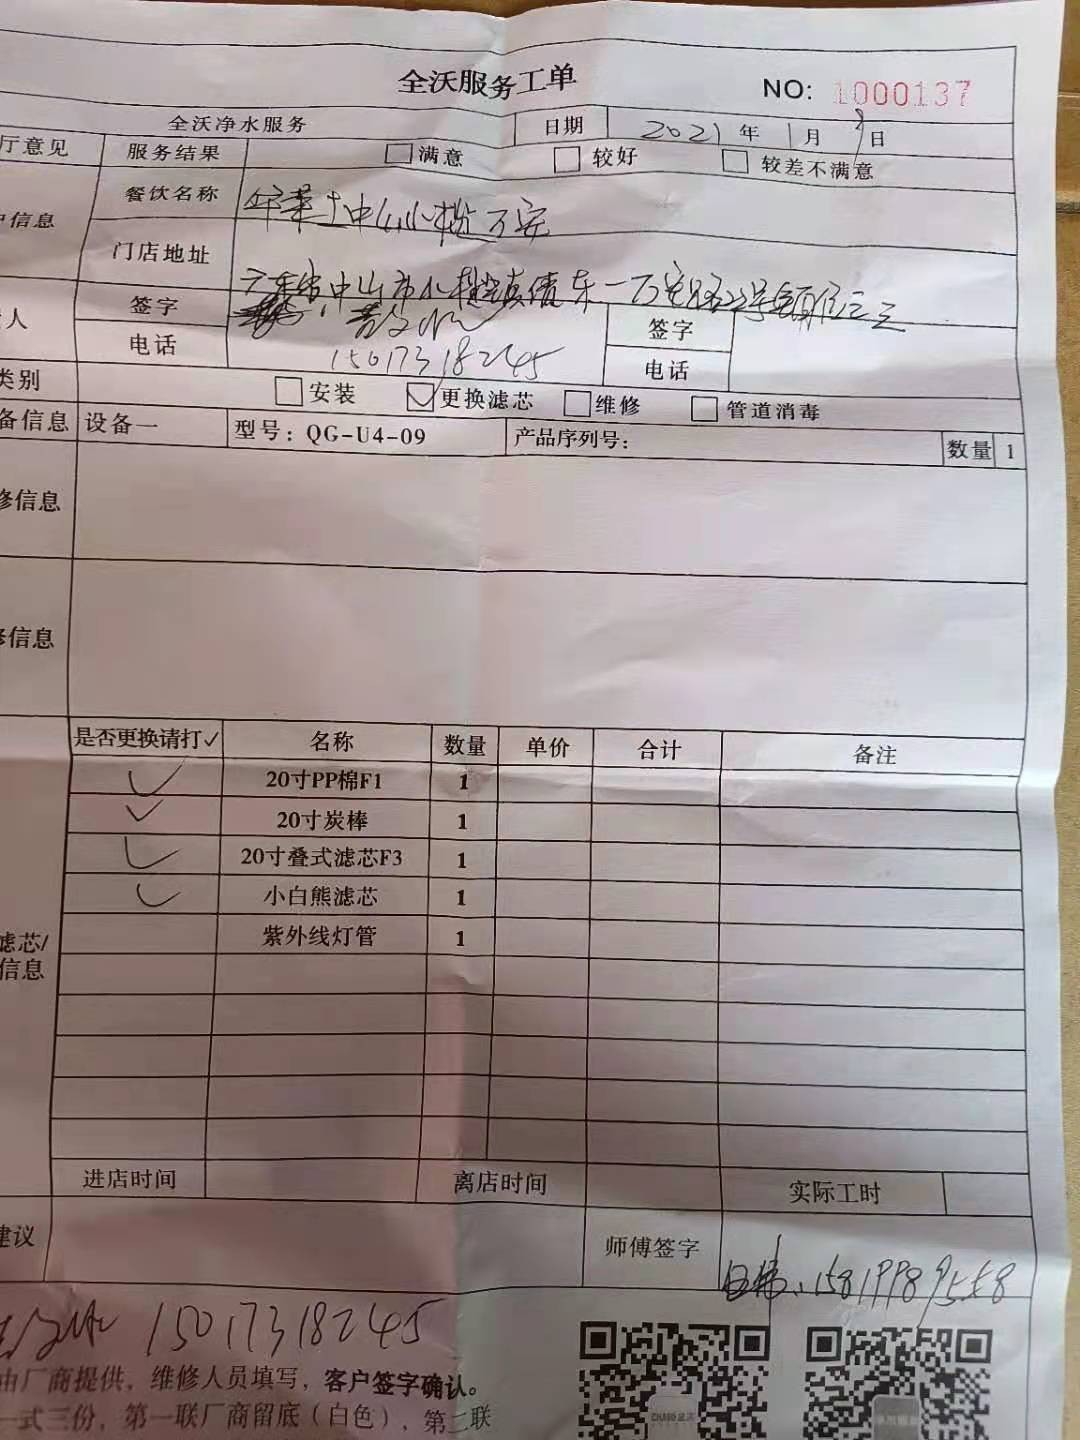 全沃服务工单
NO: 1000137
全沃净水服务 日期 2021 年 1 月 9 日
厅意见 服务结果 满意 较好 较差不满意
户信息 餐饮名称 华莱士中山小榄万安
门店地址 广东省中山市小榄镇绩东一万安路2号铺位之三
人 签字 签字
电话 15017318245 电话
类别 安装 ✓ 更换滤芯 维修 管道消毒
备信息 设备一 型号：QG-U4-09 产品序列号： 数量 1
修信息
修信息
是否更换请打✓ 名称 数量 单价 合计 备注
✓ 20寸PP棉F1 1
✓ 20寸炭棒 1
✓ 20寸叠式滤芯F3 1
✓ 小白熊滤芯 1
紫外线灯管 1
滤芯/
信息
进店时间 离店时间 实际工时
建议 师傅签字 15819989558
15017318245
由厂商提供，维修人员填写，客户签字确认。
一式三份，第一联厂商留底（白色），第二联